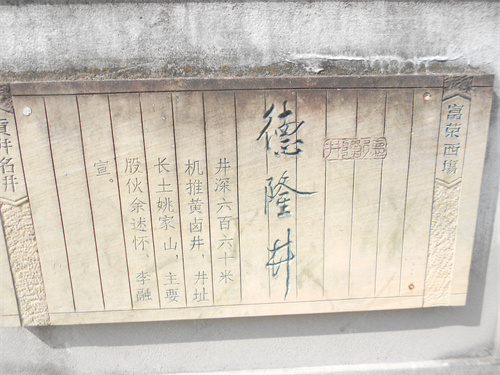 富荣西場
德隆井
井深六百六十米
机推黄卤井，井址
长土姚家山，主要
股伙余述怀、李融
宣。
貢井名井